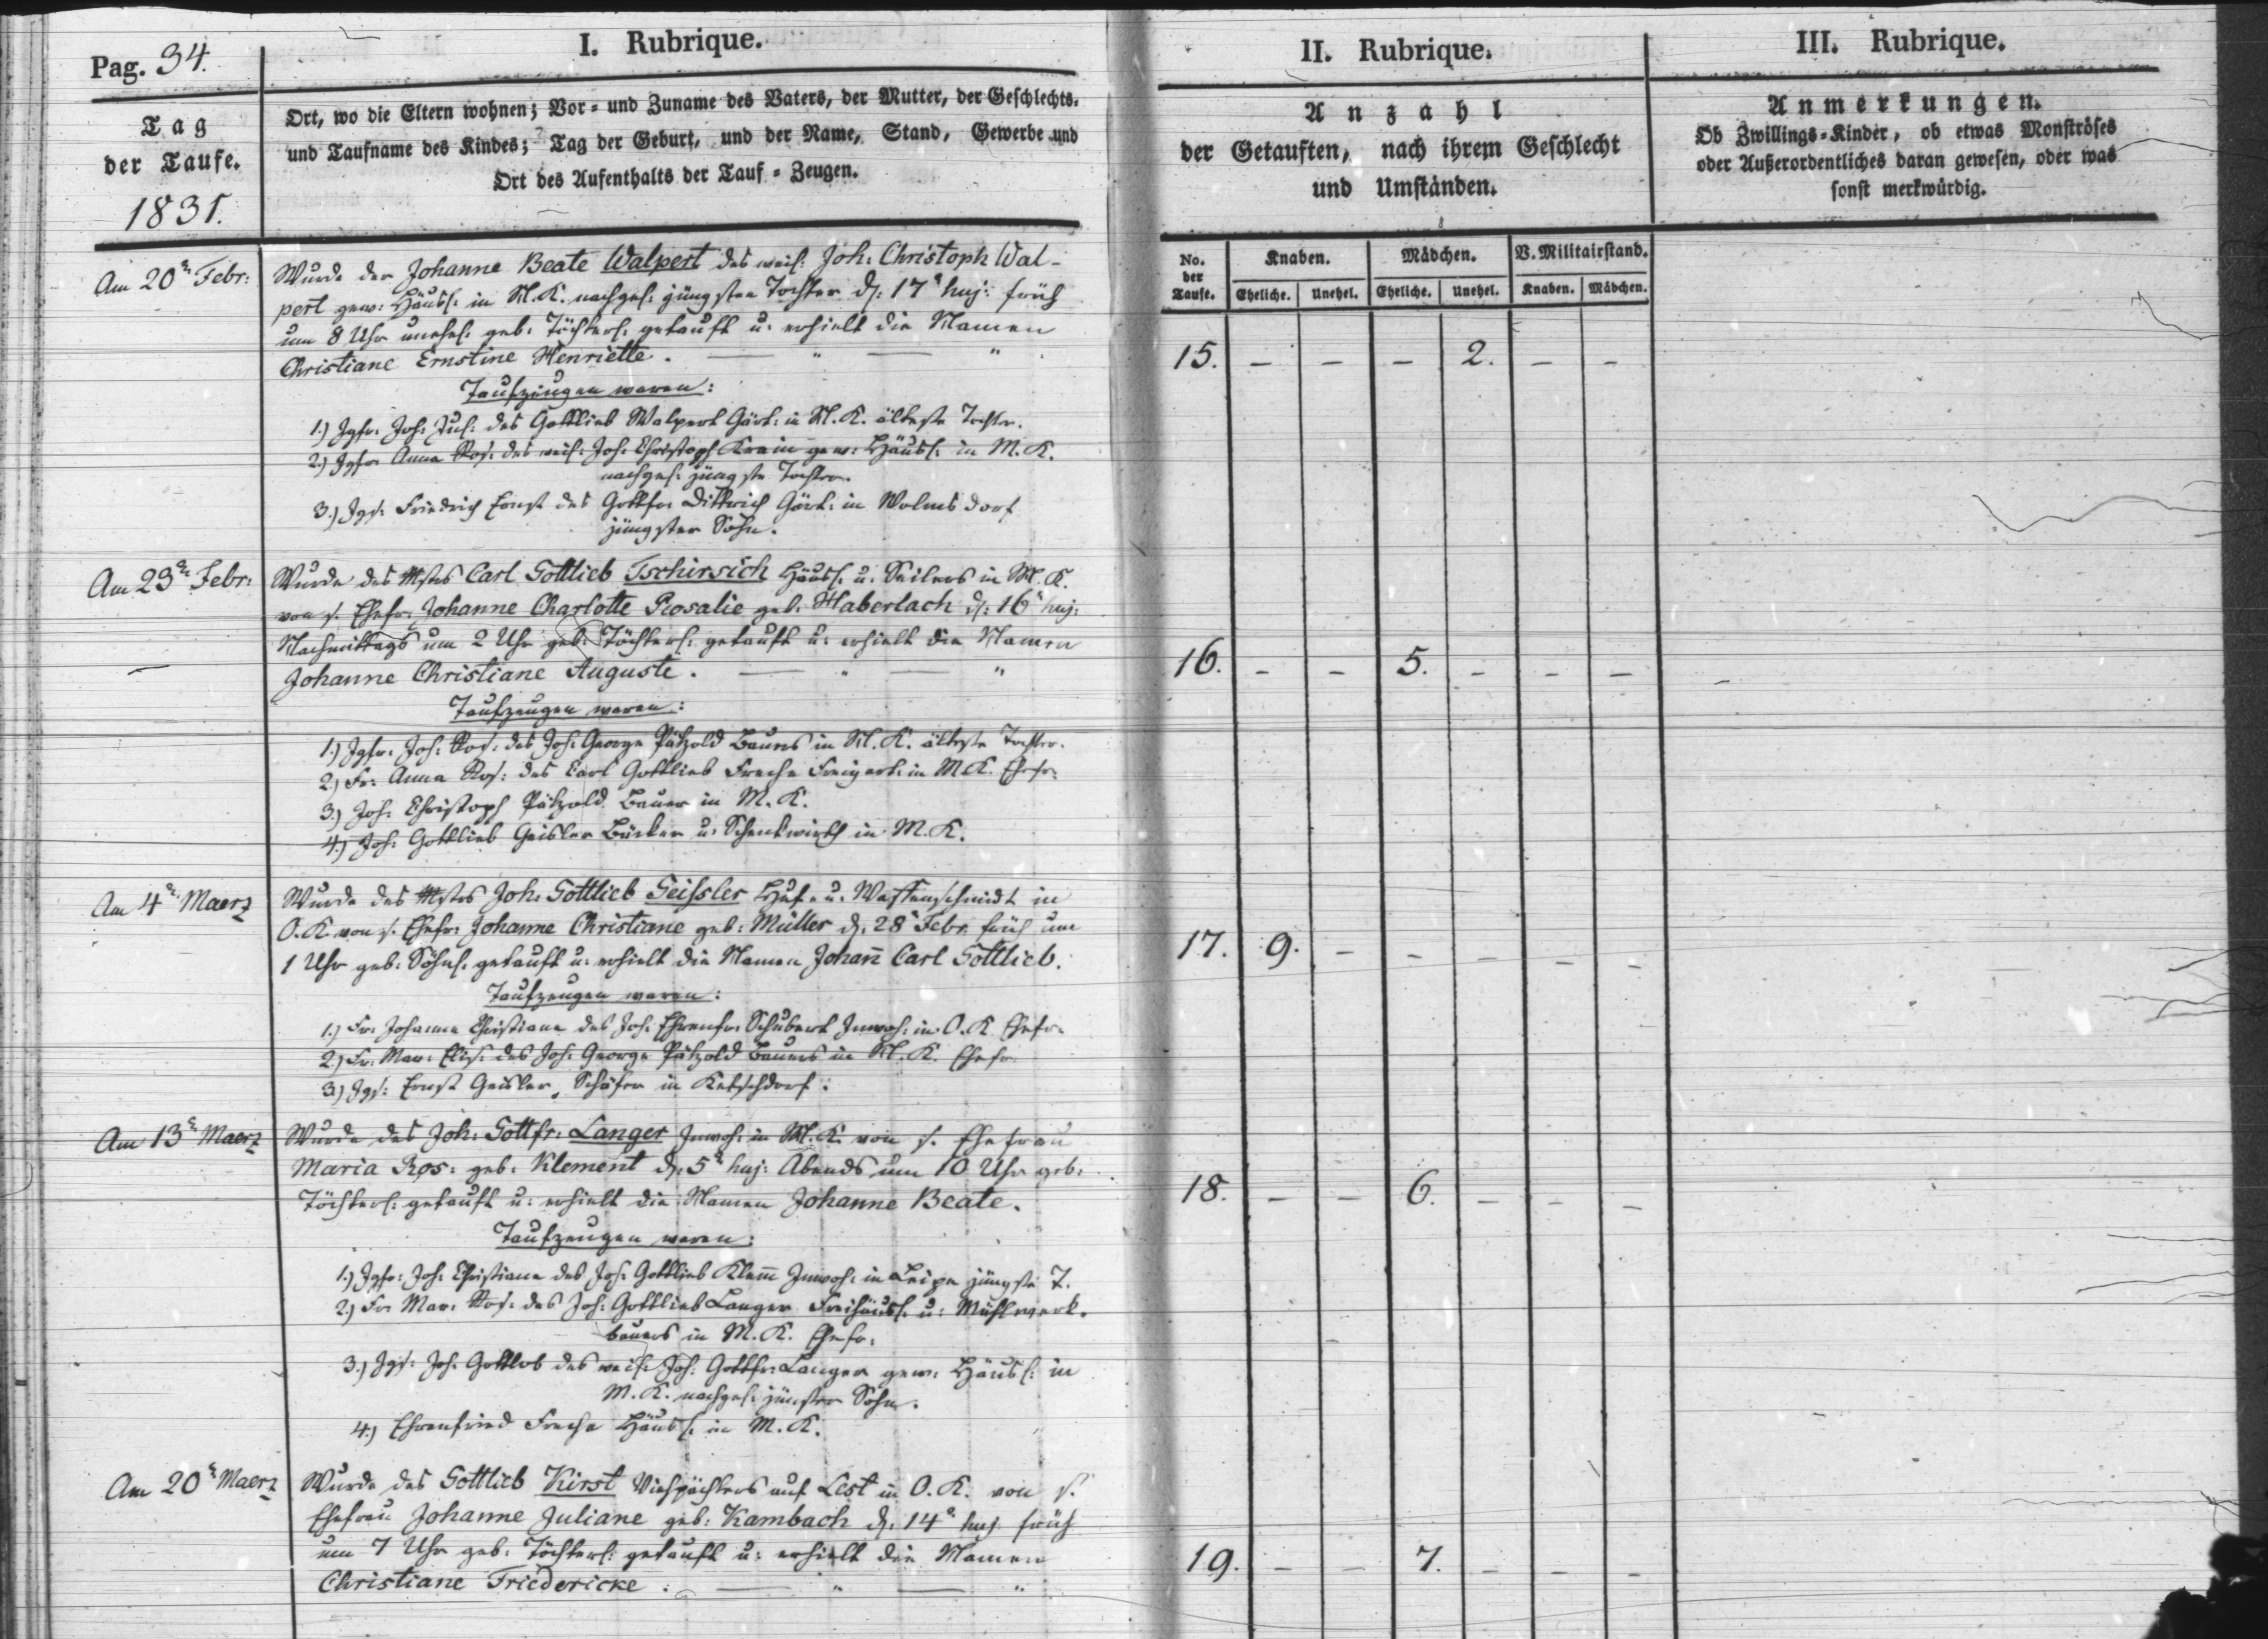 Pag. 34.
I. Rubrique.
II. Rubrique.
III. Rubrique.
Tag
der Taufe.
1831.
Ort, wo die Eltern wohnen; Vor- und Zuname des Vaters, der Mutter, der Geschlechts-
und Taufname des Kindes; Tag der Geburt, und der Name, Stand, Gewerbe und
Ort des Aufenthalts der Tauf-Zeugen.
Anzahl
der Getauften, nach ihrem Geschlecht
und Umständen.
Anmerkungen.
Ob Zwillings-Kinder, ob etwas Monströses
oder Außerordentliches daran gewesen, oder was
sonst merkwürdig.
No. der Taufe.
Knaben.
Mädchen.
V. Militairstand.
Eheliche. Unehel. Eheliche. Unehel. Knaben. Mädchen.
Am 20n Febr:
Wurde der Johanne Beate Walpert des weil: Joh: Christoph Wal-
pert gew: Häusl: in M. K. nachgel: jüngsten Tochter d: 17n huj: früh
um 8 Uhr unehel: geb: Töchterl: getauft u: erhielt die Namen
Christiane Ernstine Henriette. — " — "
15. – – – 2. – –
Taufzeugen waren:
1.) Jgfr. Joh: Jul: des Gottlieb Walpert Gärt: in M. K. älteste Tochter.
2.) Jgfr. Anna Ros: des weil: Joh: Christoph Krain gew: Häusl: in M. K.
nachgel: jüngste Tochter.
3.) Jgs: Friedrich Ernst des Gottfr. Dittrich Gärt: in Wolmsdorf
jüngster Sohn.
Am 23n Febr:
Wurde des Mstrs Carl Gottlieb Tschirsich Häusl: u: Seilers in M. K.
von s. Ehefr: Johanne Charlotte Rosalie geb. Haberlach d: 16n huj:
Nachmittags um 2 Uhr geb: Töchterl: getauft u: erhielt die Namen
Johanne Christiane Auguste. — " — "
16. – – 5. – – –
Taufzeugen waren:
1.) Jgfr: Joh: Ros: des Joh: George Pätzold Bauers in M. K. älteste Tochter.
2.) Fr: Anna Ros: des Carl Gottlieb Freche Freigärt: in M. K. Ehefr:
3.) Joh: Christoph Pätzold Bauer in M. K.
4.) Joh: Gottlieb Geisler Bäcker u: Schenkwirth in M. K.
Am 4n Maerz
Wurde des Mstrs Joh: Gottlieb Geissler Huf- u: Waffenschmidt in
O. K. von s. Ehefr: Johanne Christiane geb: Müller d: 28n Febr. früh um
1 Uhr geb: Söhnl: getauft u: erhielt die Namen Johañ Carl Gottlieb.
17. 9. – – – – –
Taufzeugen waren:
1.) Fr: Johanne Christiane des Joh: Ehrenfr: Schubert Inwoh: in O. K. Ehefr.
2.) Fr: Mar: Elis: des Joh: George Pätzold Bauers in M. K. Ehefr.
3.) Jgs: Ernst Geisler, Schäfer in Ketschdorf.
Am 13n Maerz
Wurde des Joh: Gottfr: Langer Inwoh: in M. K. von s. Ehefrau
Maria Ros: geb: Klement d: 5n huj: Abends um 10 Uhr geb:
Töchterl: getauft u: erhielt die Namen Johanne Beate.
18. – – 6. – – –
Taufzeugen waren:
1.) Jgfr: Joh: Christiane des Joh: Gottlieb Klem̄ Inwoh: in Leipe jüngste T.
2.) Fr: Mar: Ros: des Joh: Gottlieb Langer Freihäusl: u: Mühlwerk-
bauers in M. K. Ehefr:
3.) Jgs: Joh: Gottlob des weil: Joh: Gottfr: Langer gew: Häusl: in
M. K. nachgel: jüngster Sohn.
4.) Ehrenfried Freche Häusl: in M. K.
Am 20n Maerz
Wurde des Gottlieb Kirst Viehpächters auf Lest in O. K. von s.
Ehefrau Johanne Juliane geb: Kambach d: 14n huj. früh
um 7 Uhr geb: Töchterl: getauft u: erhielt die Namen
Christiane Friedericke. — " — "
19. – – 7. – – –